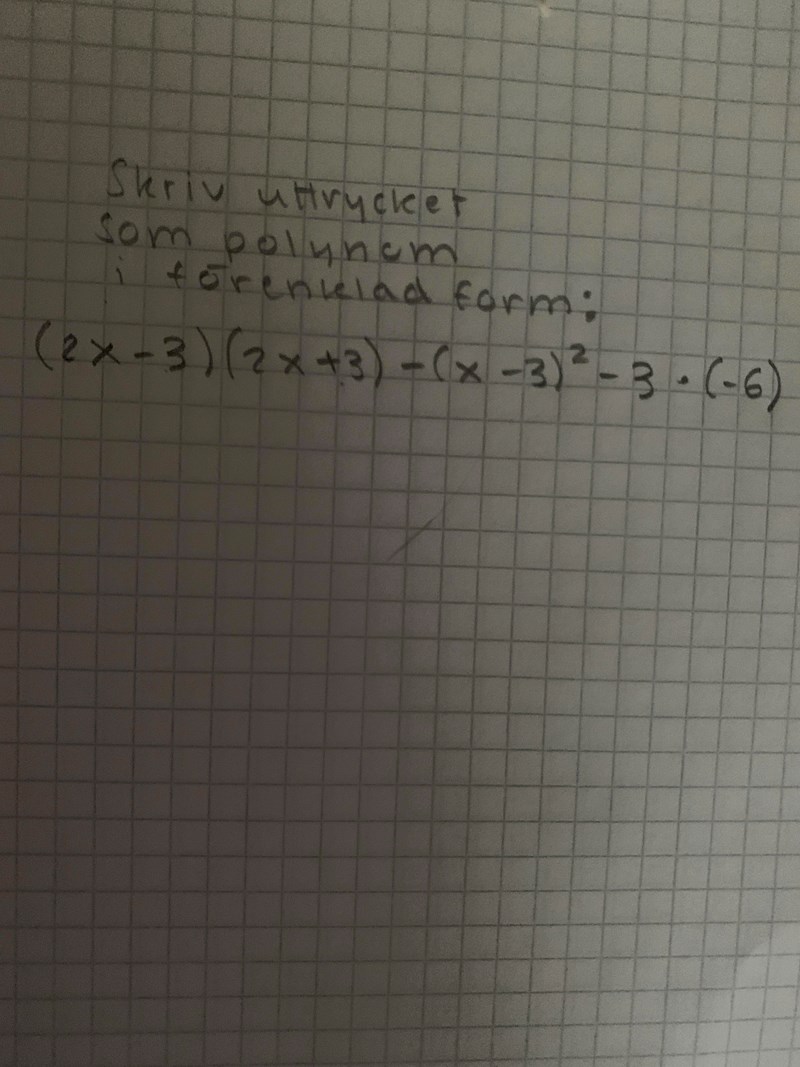 Skriv uttrycket
som polynom
i förenklad form:
(2x-3)(2x+3)-(x-3)²-3·(-6)